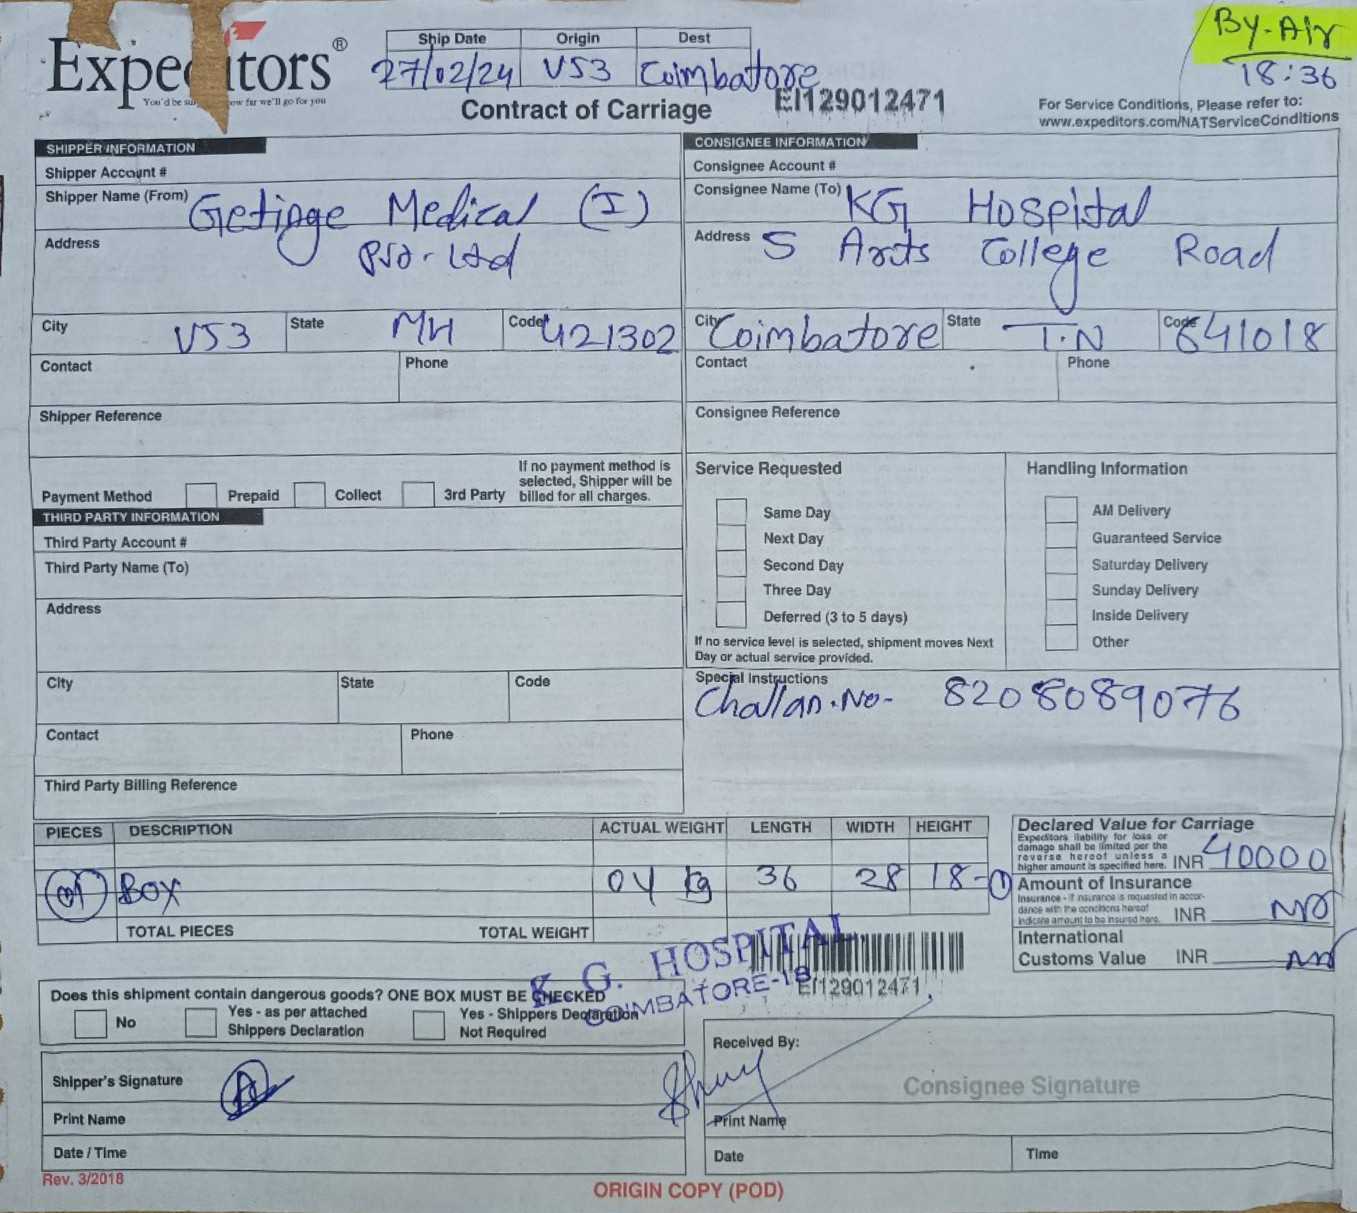 Expeditors®
You'd be su ow far we'll go for you
Ship Date Origin Dest
27/02/24 VS3 Coimbatore
By-Air
18:36
Contract of Carriage
EI129012471
For Service Conditions, Please refer to:
www.expeditors.com/NATServiceConditions
SHIPPER INFORMATION
Shipper Account #
Shipper Name (From) Getinge Medical (I)
Address Pvt. Ltd
City VS3 State MH Code 421302
Contact Phone
Shipper Reference
Payment Method Prepaid Collect 3rd Party
If no payment method is
selected, Shipper will be
billed for all charges.
THIRD PARTY INFORMATION
Third Party Account #
Third Party Name (To)
Address
City State Code
Contact Phone
Third Party Billing Reference
CONSIGNEE INFORMATION
Consignee Account #
Consignee Name (To) KG Hospital
Address 5 Arts College Road
City Coimbatore State T.N Code 641018
Contact Phone
Consignee Reference
Service Requested
Same Day
Next Day
Second Day
Three Day
Deferred (3 to 5 days)
If no service level is selected, shipment moves Next
Day or actual service provided.
Handling Information
AM Delivery
Guaranteed Service
Saturday Delivery
Sunday Delivery
Inside Delivery
Other
Special Instructions
Challan.No- 8208089076
PIECES DESCRIPTION ACTUAL WEIGHT LENGTH WIDTH HEIGHT
01 BOX 04 kg 36 28 18-1
TOTAL PIECES TOTAL WEIGHT
Declared Value for Carriage
Expeditors liability for loss or
damage shall be limited per the
reverse hereof unless a
higher amount is specified here. INR 40000
Amount of Insurance
Insurance - If insurance is requested in accor-
dance with the conditions hereof
indicate amount to be insured here. INR
International
Customs Value INR
K. G. HOSPITAL
COIMBATORE-18
EI129012471
Does this shipment contain dangerous goods? ONE BOX MUST BE CHECKED
No
Yes - as per attached
Shippers Declaration
Yes - Shippers Declaration
Not Required
Shipper's Signature
Print Name
Date / Time
Received By:
Consignee Signature
Print Name
Date Time
Rev. 3/2018
ORIGIN COPY (POD)